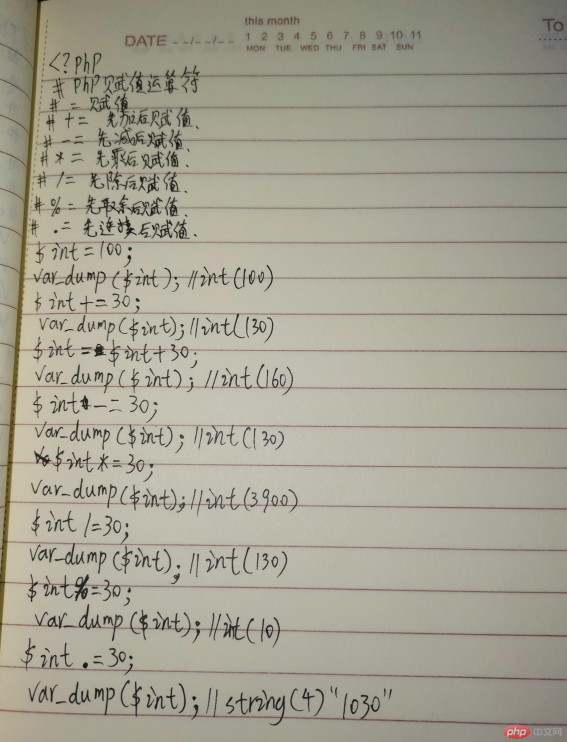 this month
DATE --/--/-- 1 2 3 4 5 6 7 8 9 10 11
MON TUE WED THU FRI SAT SUN
To
<?php
# PhP赋值运算符
# = 赋值
# += 先加后赋值、
# -= 先减后赋值、
# *= 先乘后赋值、
# /= 先除后赋值、
# %= 先取余后赋值、
# .= 先连接后赋值、
$int=100;
var_dump($int); //int(100)
$int+=30;
var_dump($int); //int(130)
$int=$int+30;
var_dump($int); //int(160)
$int-=30;
var_dump($int); //int(130)
$int*=30;
var_dump($int); //int(3900)
$int/=30;
var_dump($int); //int(130)
$int%=30;
var_dump($int); //int(10)
$int .=30;
var_dump($int); //string(4)"1030"
php 中文网